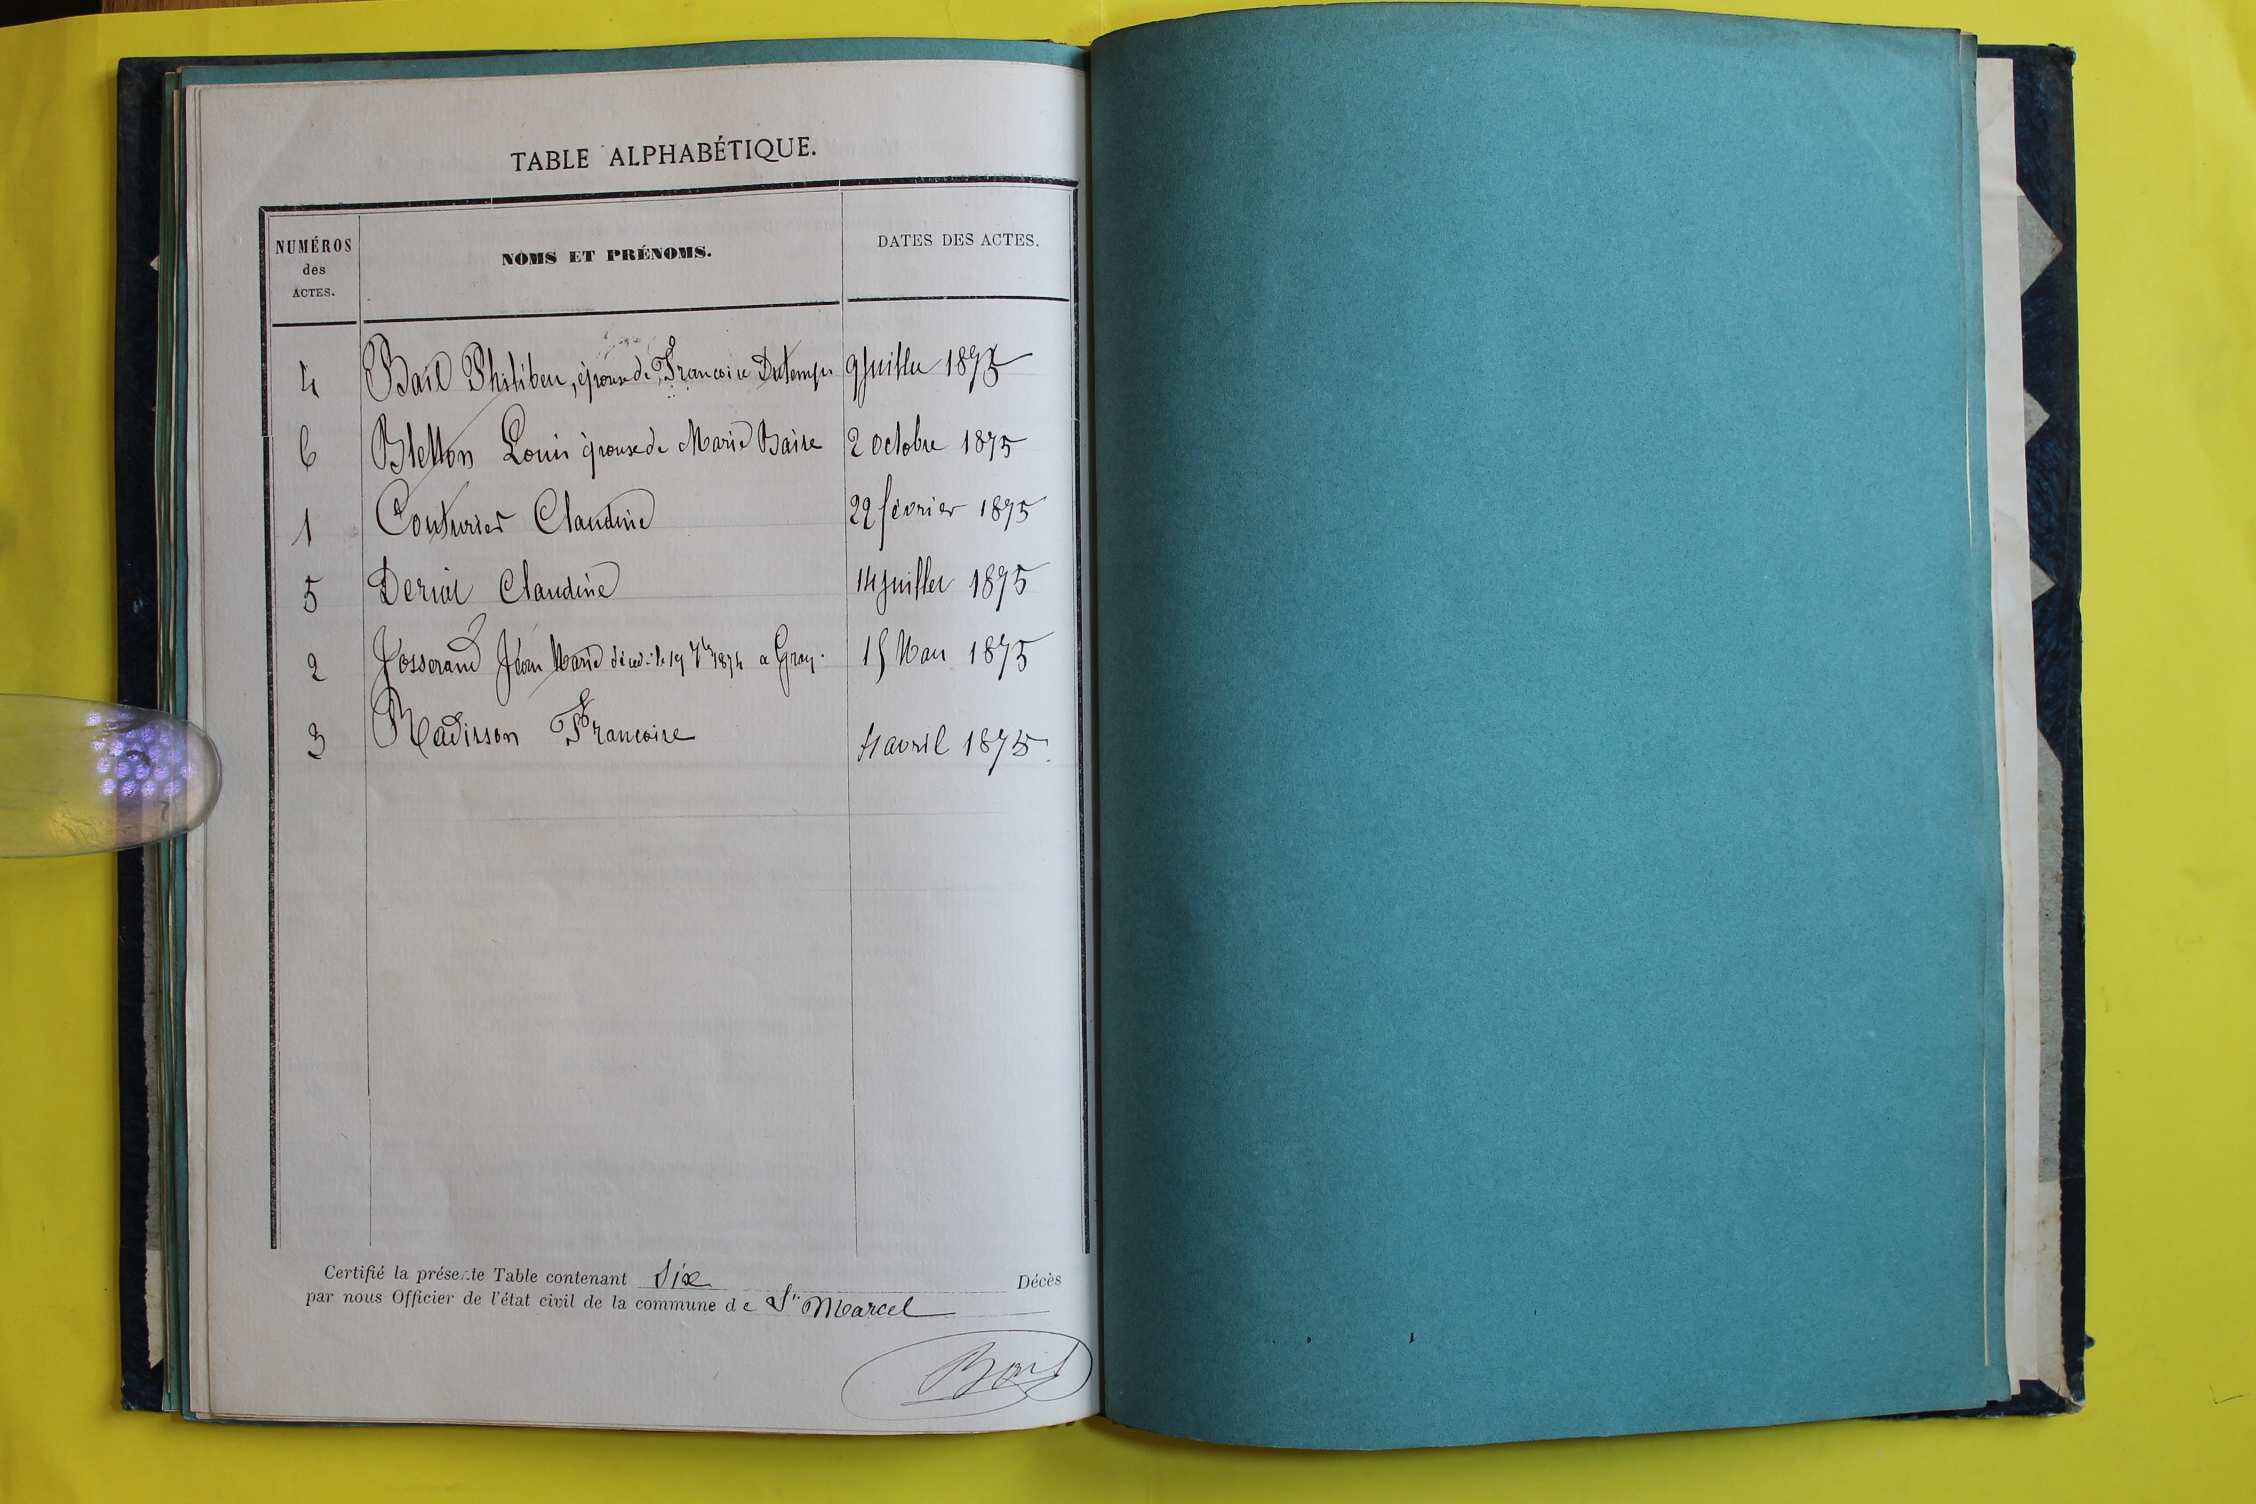 TABLE ALPHABÉTIQUE.
NUMÉROS
des
ACTES.
NOMS ET PRÉNOMS.
DATES DES ACTES.
4 Bail Philiber, épouse de Francoise 9 Juillet 1875
6 Bletton Louis épouse de Marie Baise 2 octobre 1875
1 Couturier Claudine 22 février 1875
5 Claudine 14 juillet 1875
2 Josserand Jean Marie décédé le 19 7bre 1874 a Gray. 15 Mars 1875
3 Radisson Francoise avril 1875.
Certifié la présente Table contenant Six Décès
par nous Officier de l'état civil de la commune de St Marcel